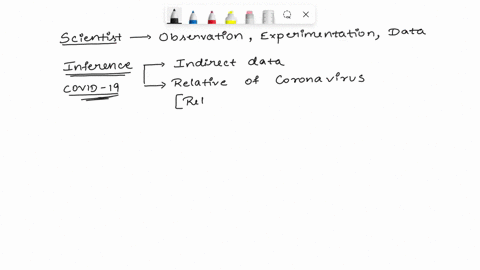 Scientist → Observation, Experimentation, Data
Inference → Indirect data
COVID-19 → Relative of Coronavirus
[Rel